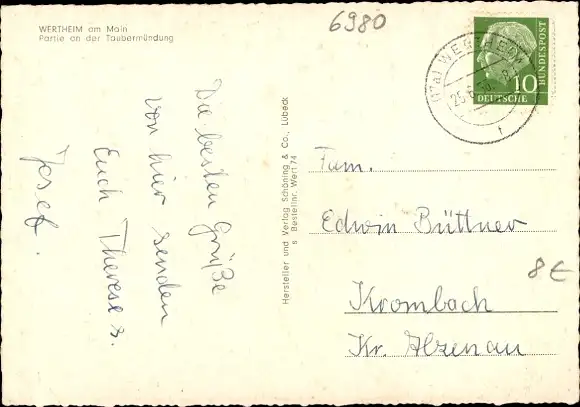 WERTHEIM am Main
Partie an der Taubermündung
6980
DEUTSCHE
BUNDESPOST
10
(17a)
Die besten Grüße
von hier senden
Euch Therese u.
Josef.
Hersteller und Verlag Schöning & Co., Lübeck
Bestellnr. Wert 74
Fam.
Edwin Büttner
8 €
Krombach
Kr. Alzenau